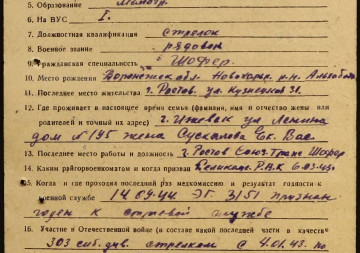 5. Образование
6. На ВУС I.
7. Должностная квалификация стрелок
8. Военное звание рядовой
9. Гражданская специальность Шофер.
10. Место рождения Воронежская обл. р-н.
11. Последнее место жительства г. Ростов. ул. Кузнецкая 31.
12. Где проживает в настоящее время семья (фамилия, имя и отчество жены или
родителей и точный их адрес) г. Ижевск ул Ленина
дом № 195 жена Ек. Вас.
13. Последнее место работы и должность г. Ростов Союз Транс Шофер
14. Каким райгорвоенкоматом и когда призван Р.В.К 6.03.43г.
15. Когда и где проходил последний раз медкомиссию и результат годности к
военной службе 14.04.44 ЭГ 3151 признан
годен к строевой службе
16. Участие в Отечественной войне (в составе какой последней части в качестве
303 див. стрелком с 4.01.43. по